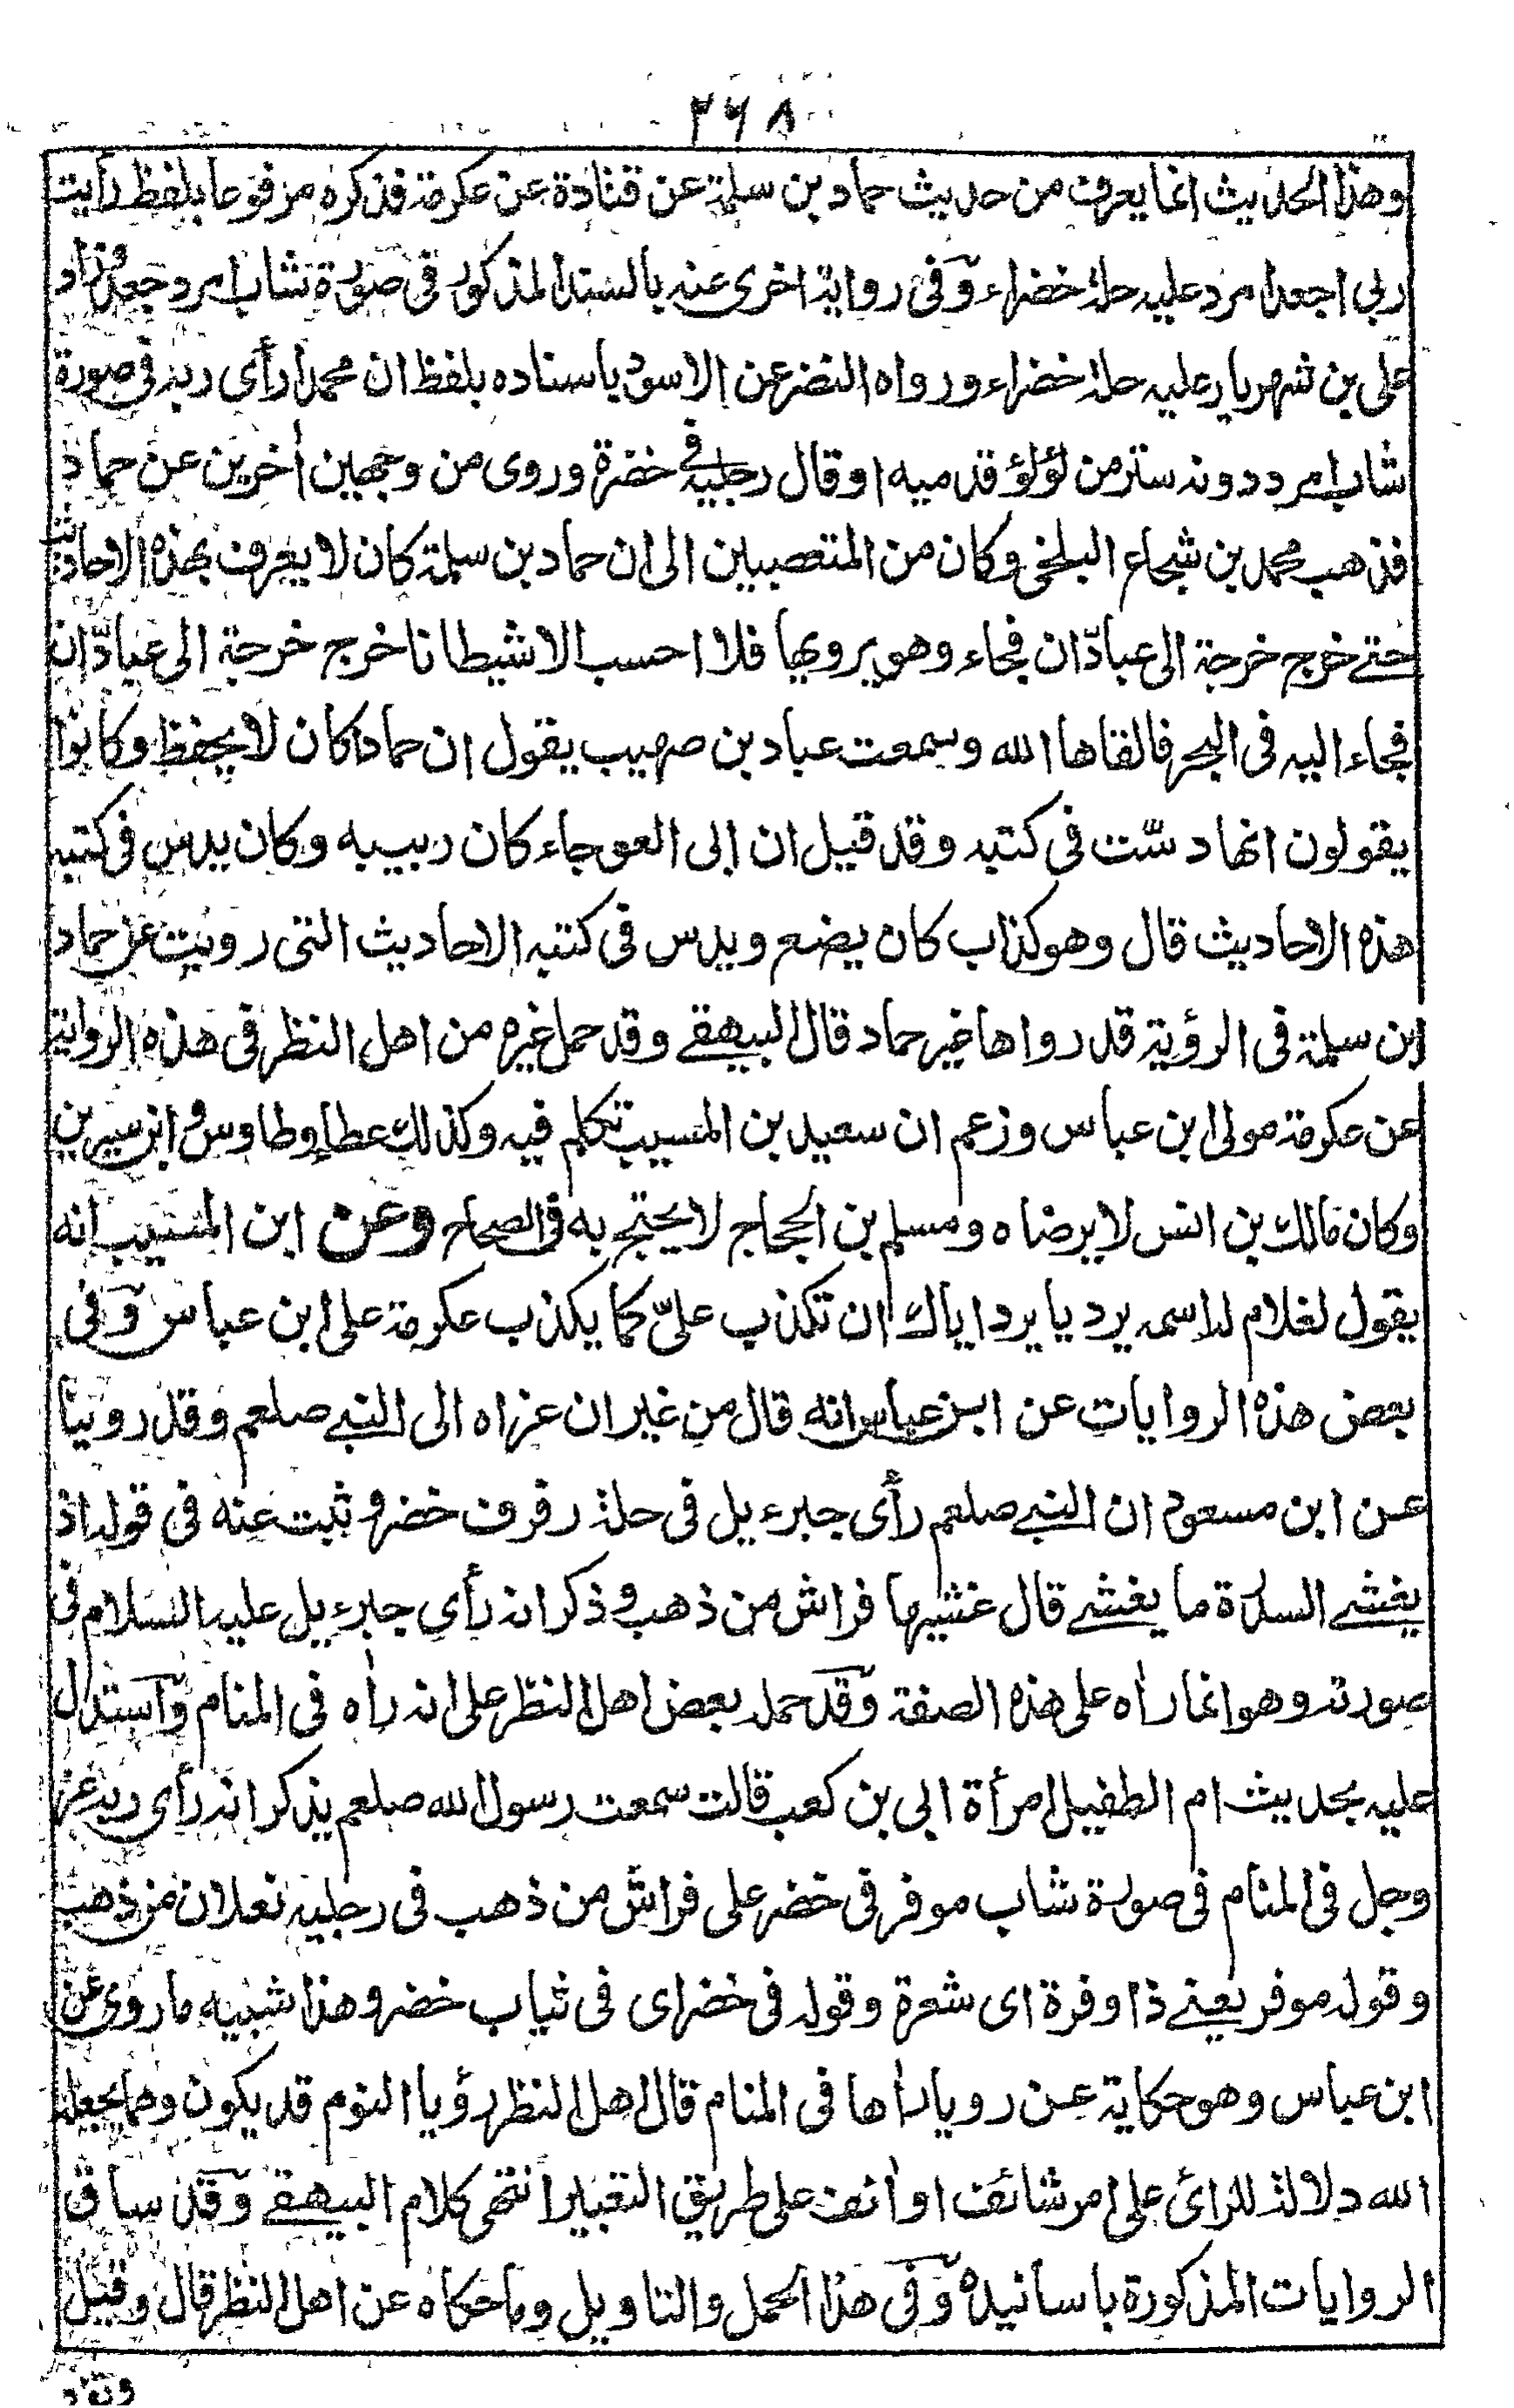 ٢٦٨
وهذا الحديث انما يعرف من حديث حماد بن سلمة عن قتادة عن عكرمة فذكره مرفوعا بلفظ رأيت
ربي اجعد امرد عليه حلة خضراء وفي رواية اخرى عنه بالسند المذكور في صورة شاب امرد جعد وزاد
علي بن شهريار عليه حلة خضراء ورواه النضر عن الاسود باسناده بلفظ ان محمدا رأى ربه في صورة
شاب امرد دونه ستر من لؤلؤ قدميه او قال رجليه في خضرة وروى من وجهين اخرين عن حماد
فذهب محمد بن شجاع البلخي وكان من المتعصبين الى ان حماد بن سلمة كان لا يعرف بهذه الاحاديث
حتى خرج خرجة الى عبادّان فجاء وهو يرويها فلا احسب الا شيطانا خرج خرجة الى عبادّان
فجاء اليه في البحر فالقاها الله وسمعت عباد بن صهيب يقول ان حمادا كان لا يحفظ وكانوا
يقولون انها دسّت في كتبه وقد قيل ان ابى العوجاء كان ربيبه وكان يدس في كتبه
هذه الاحاديث قال وهو كذاب كان يضع ويدس في كتبه الاحاديث التي رويت عن حماد
ابن سلمة في الرؤية قد رواها غير حماد قال البيهقي وقد حمل غيره من اهل النظر في هذه الرواية
عن عكرمة مولى ابن عباس وزعم ان سعيد بن المسيب تكلم فيه وكذلك عطاء وطاوس وابن سيرين
وكان مالك بن انس لا يرضاه ومسلم بن الحجاج لا يحتج به في الصحاح وعن ابن المسيب انه
يقول لغلام له اسمه برد يا برد اياك ان تكذب عليّ كما يكذب عكرمة على ابن عباس وفي
بعض هذه الروايات عن ابن عباس انه قال من غير ان عزاه الى النبي صلعم وقد روينا
عن ابن مسعود ان النبي صلعم رأى جبرءيل في حلة رفرف خضر و ثبت عنه في قوله اذ
يغشى السدرة ما يغشى قال غشيها فراش من ذهب و ذكر انه رأى جبرءيل عليه السلام في
صورته وهو انما راٰه على هذه الصفة وقد حمله بعض اهل النظر على انه راٰه في المنام واستدل
عليه بحديث ام الطفيل امرأة ابي بن كعب قالت سمعت رسول الله صلعم يذكر انه رأى ربه عز
وجل في المنام في صورة شاب موفر في خضر على فراش من ذهب في رجليه نعلان من ذهب
وقوله موفر يعني ذا وفرة اى شعرة وقوله في خضر اى في ثياب خضر وهذا شبيه ما روى عن
ابن عباس وهو حكاية عن رويا راٰها في المنام قال اهل النظر رؤيا النوم قد يكون وهما يجعله
الله دلالة للرائى على امر شائف او اٰئف على طريق التعبير انتهى كلام البيهقي وقد ساق
الروايات المذكورة باسانيده وفي هذا الحمل والتاويل وما حكاه عن اهل النظر قال وقيل